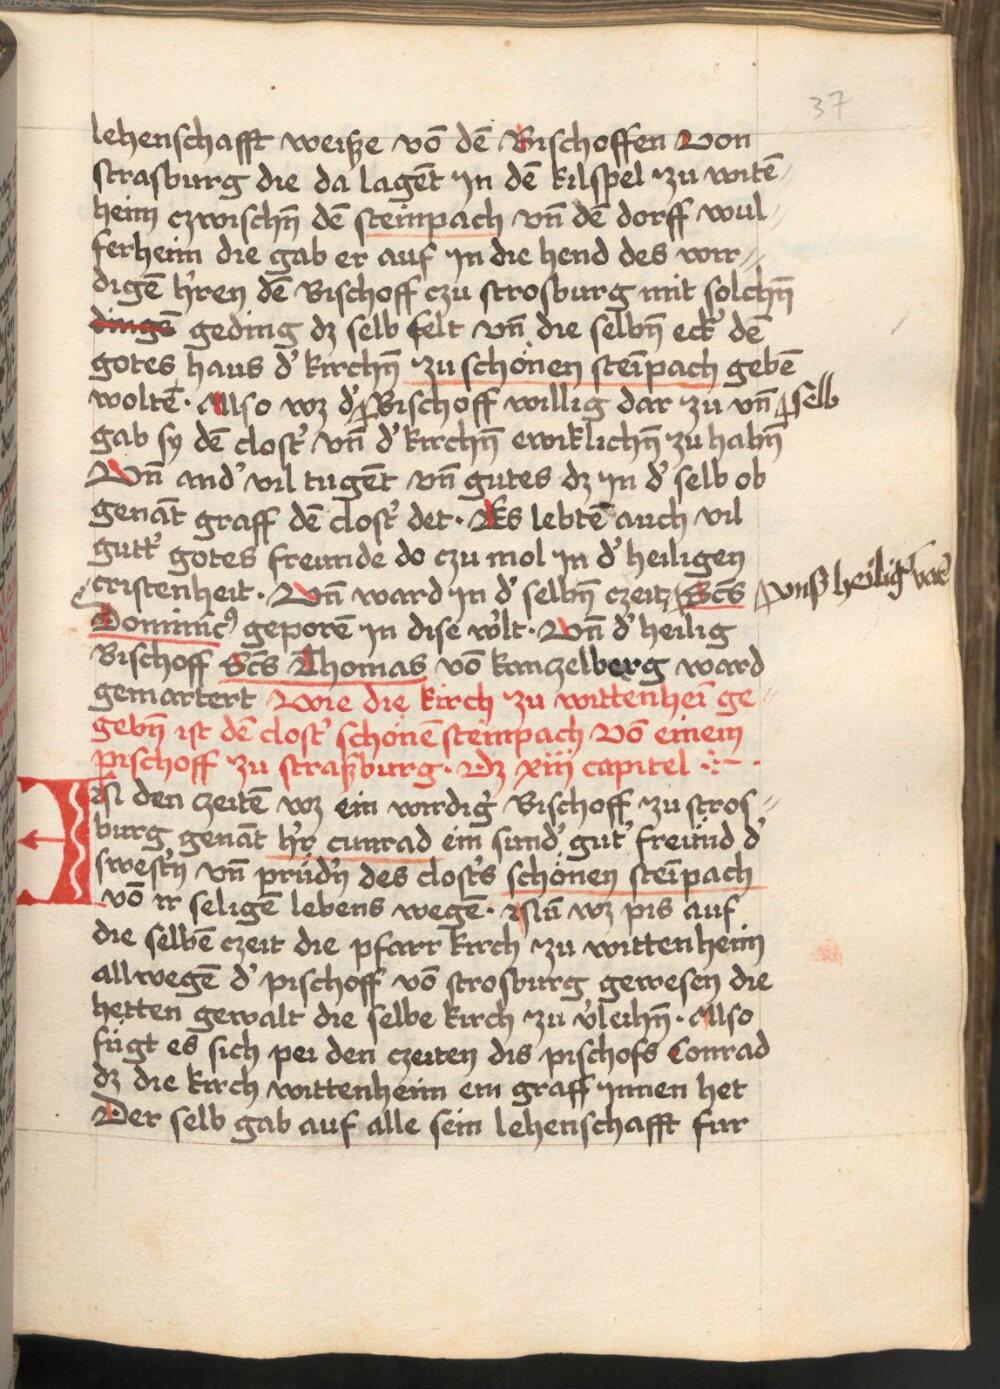 37
lehenschafft weisze võ dē Bischoffen Von
strasburg die da lagēt in dē kilspel zu witē
heim czwischn̄ dē steinpach vn̄ dē dorff wul
ferheim die gab er auf in die hend des wir
digē h'ren dē Bischoff czu strosburg mit solchn̄
dingē geding dz selb felt vn̄ die selbn̄ eck' dē
gotes haus d' kirchn̄ zu schönen steīpach gebē
woltē. Also wz d' Bischoff willig dar zu vn̄ selb
gab sy dē clost' vn̄ d' kirchn̄ ewiklichn̄ zu habn̄
Vn̄ and' vil tugēt vn̄ gutes dz in d' selb ob
genāt graff dē clost' det. Es lebtē auch vil
gutt' gotes freunde do czu mol in d' heiligen
cristenheit. Vn̄ ward in d' selbn̄ czeitz Scs̄
Dominic9 geporē in dise w'lt. Vn̄ d' heilig
Bischoff Scs̄ Thomas võ kanczelberg ward
gemartert Wie die kirch zu wittenheī ge
gebn̄ ist dē clost' schönē steinpach Võ einem
pischoff zu straszburg. Dz xiii capitel
In den czeitē wz ein wirdig' Bischoff zu stros
burg genāt h'r cunrad ein sund' gut' freünd d'
swest'n vn̄ prüd'n des clost's schönen steīpach
võ ir seligē lebens wegē. Nū wz pis auf
die selbē czeit die pfarr kirch zu wittenheim
allwegē d' pischoff võ strosburg gewesen die
hetten gewalt die selbe kirch zu v'leihn̄. Also
fügt es sich pei den czeiten dis pischofs Conrad
dz die kirch wittenheim ein graff innen het
Der selb gab auf alle sein lehenschafft fur